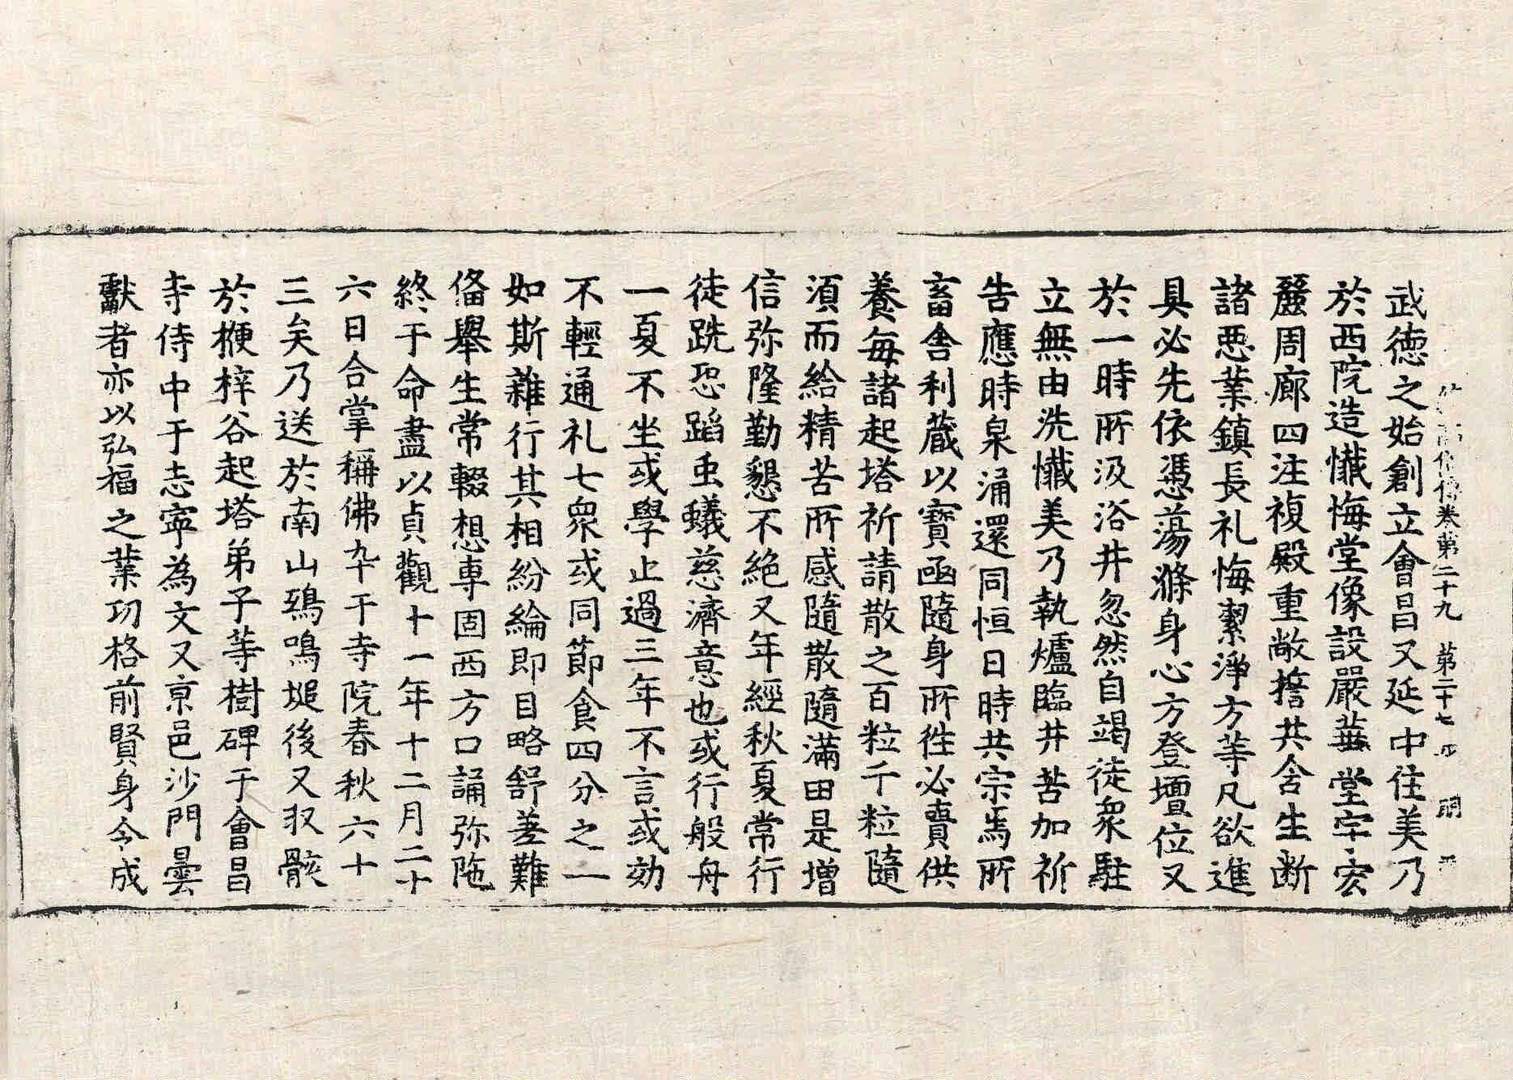 高僧傳卷第二十九 第二十七 明
武德之始創立會昌又延中住美乃
於西院造懴悔堂像設嚴華堂宇宏
麗周廊四注複殿重敞擔共含生断
諸惡業鎮長礼悔潔淨方等凡欲進
具必先依憑蕩滌身心方登壇位又
於一時所汲浴井忽然自竭徒衆駐
立無由洗懴美乃執爐臨井苦加祈
告應時泉涌還同恒日時共宗焉所
畜舍利藏以寶函隨身所徃必賷供
養每諸起塔祈請散之百粒千粒隨
湏而給精苦所感隨散隨滿田是增
信弥隆勤懇不絶又年經秋夏常行
徒跣恐蹈虫蟻慈濟意也或行般舟
一夏不坐或學止過三年不言或効
不輕通礼七衆或同節食四分之一
如斯雜行其相紛綸即目略舒差難
俻舉生常輟想専固西方口誦弥陁
終于命盡以貞觀十一年十二月二十
六日合掌稱佛卒于寺院春秋六十
三矣乃送於南山鵄鳴堆後又収骸
於楩梓谷起塔弟子等樹碑于會昌
寺侍中于志寧為文又京邑沙門曇
獻者亦以弘福之業功格前賢身令成